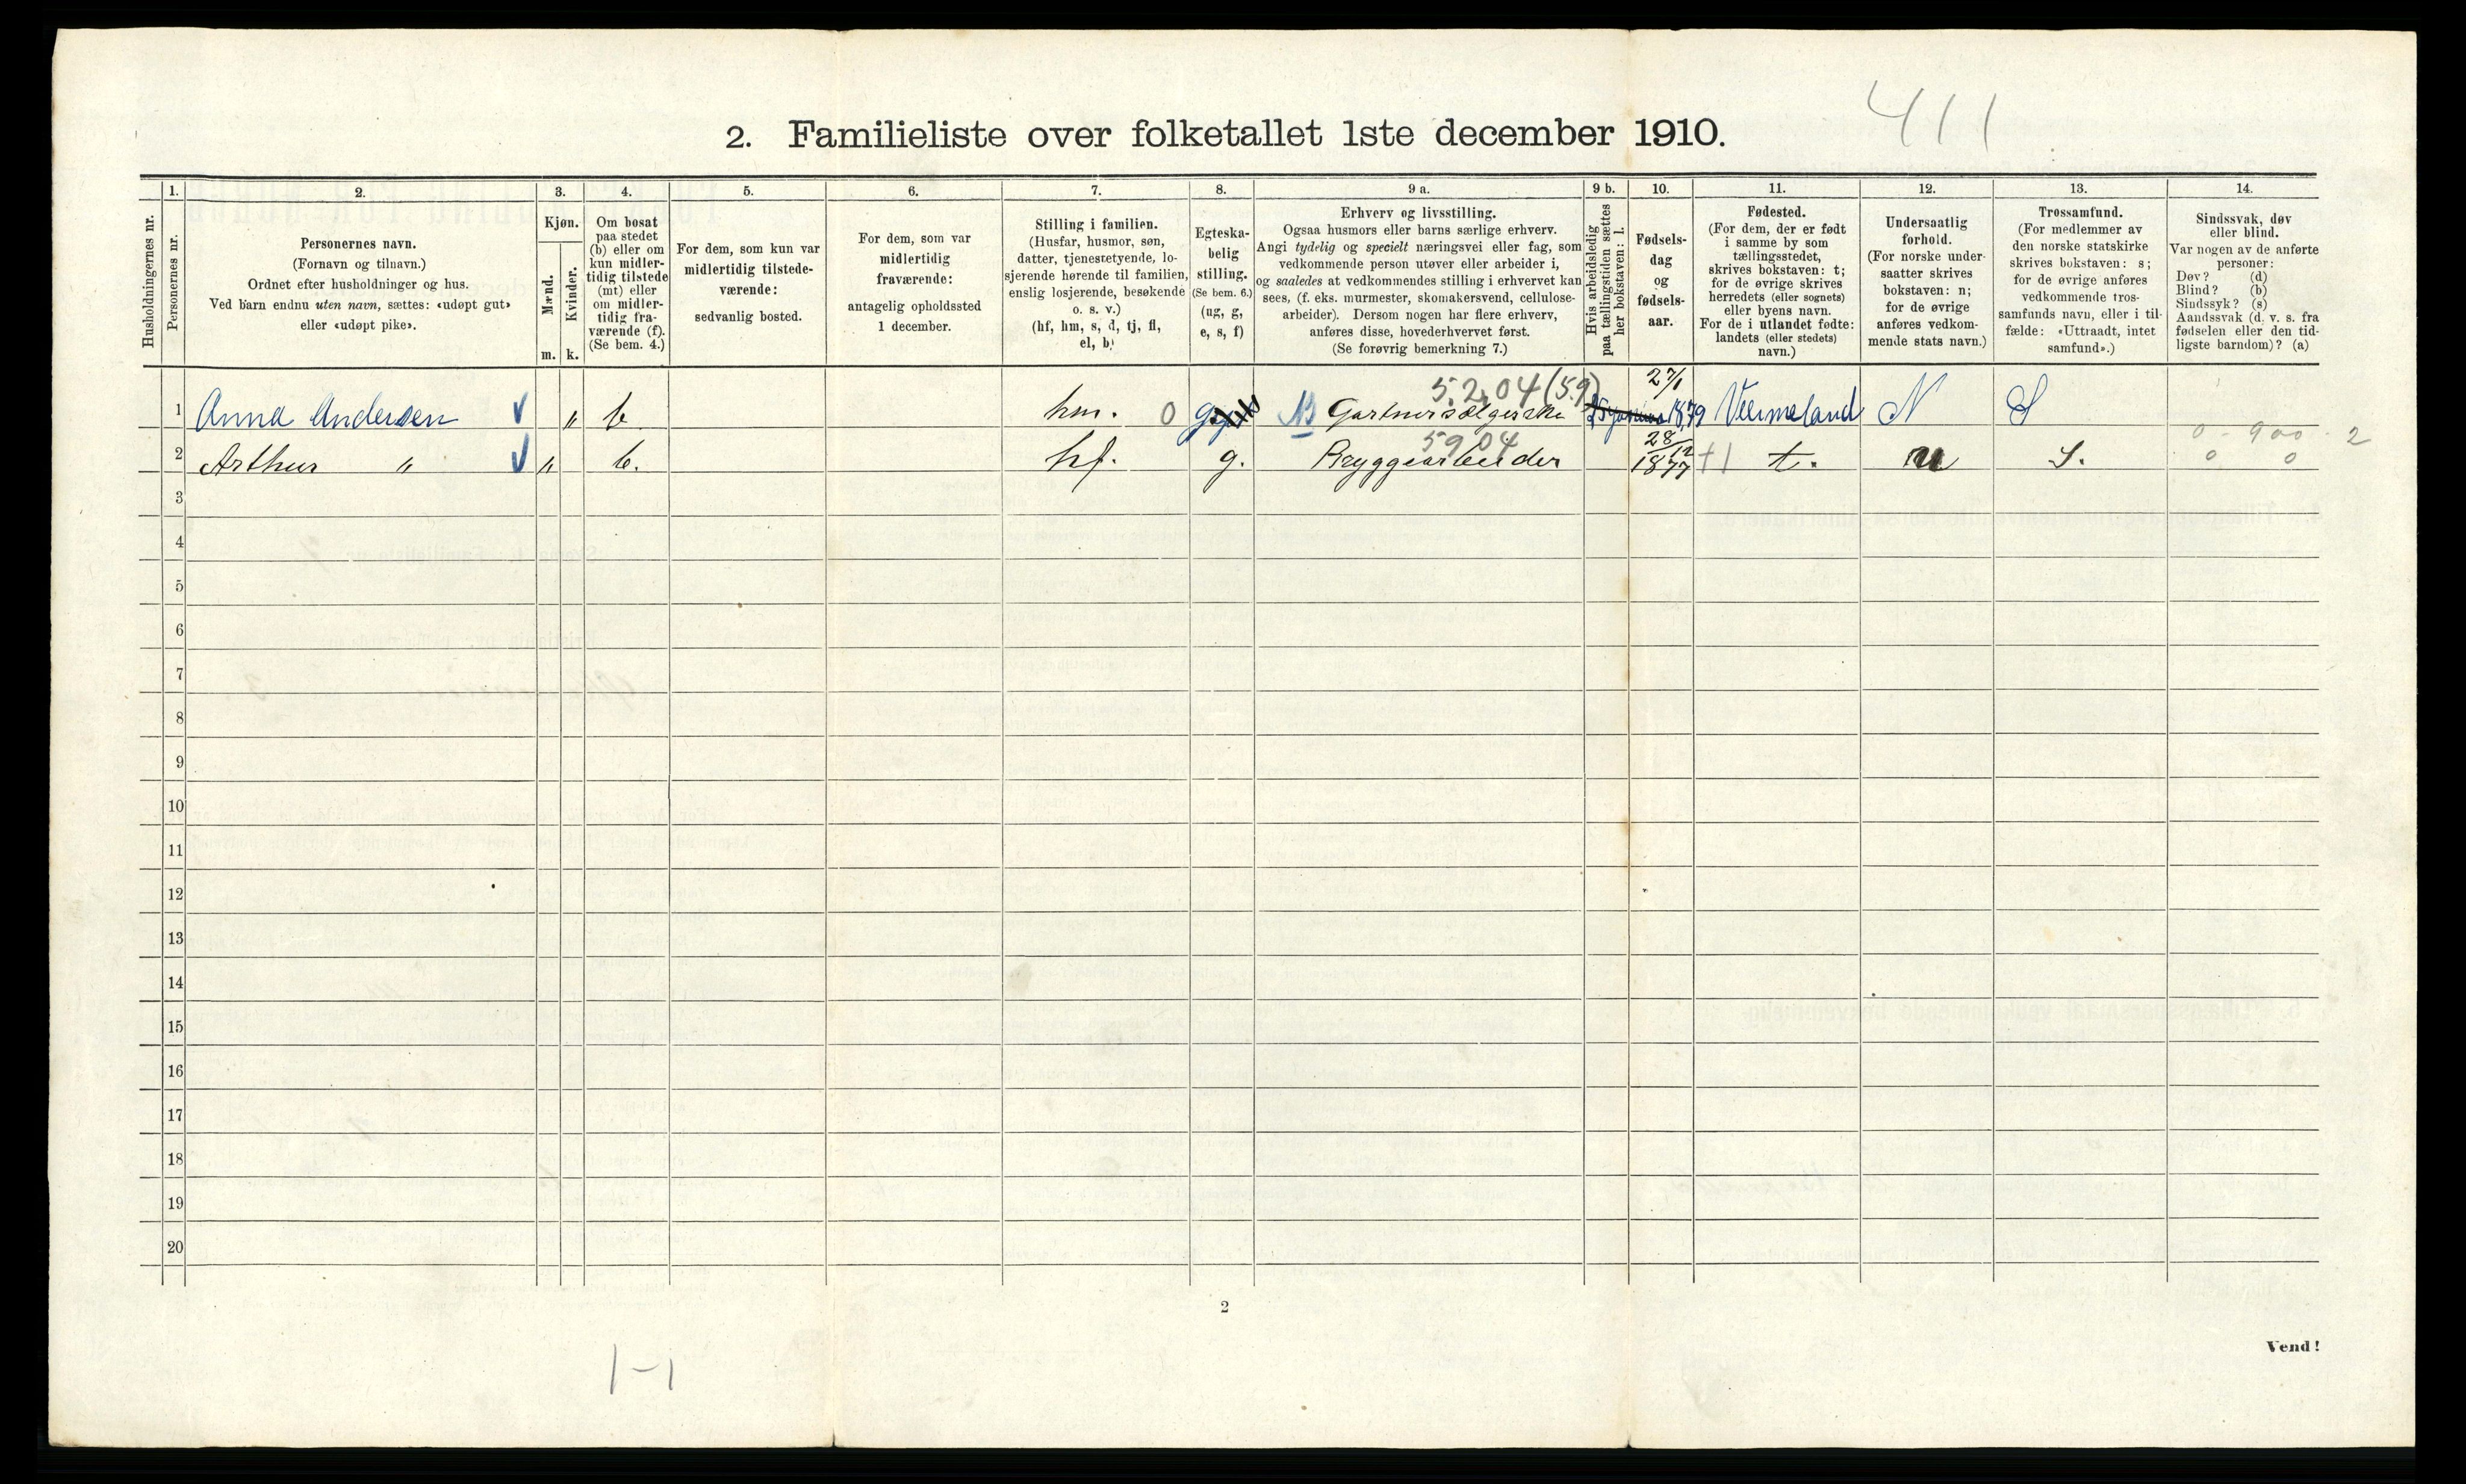 411
2. Familieliste over folketallet 1ste december 1910.
Husholdningernes nr.
1.
Personernes nr.
2.
Personernes navn.
(Fornavn og tilnavn.)
Ordnet efter husholdninger og hus.
Ved barn endnu uten navn, sættes: «udøpt gut»
eller «udøpt pike».
3.
Kjøn.
Mænd.
Kvinder.
m. k.
4.
Om bosat
paa stedet
(b) eller om
kun midler-
tidig tilstede
(mt) eller
om midler-
tidig fra-
værende (f).
(Se bem. 4.)
5.
For dem, som kun var
midlertidig tilstede-
værende:
sedvanlig bosted.
6.
For dem, som var
midlertidig
fraværende:
antagelig opholdssted
1 december.
7.
Stilling i familien.
(Husfar, husmor, søn,
datter, tjenestetyende, lo-
sjerende hørende til familien,
enslig losjerende, besøkende
o. s. v.)
(hf, hm, s, d, tj, fl,
el, b)
8.
Egteska-
belig
stilling.
(Se bem. 6.)
(ug, g,
e, s, f)
9 a.
Erhverv og livsstilling.
Ogsaa husmors eller barns særlige erhverv.
Angi tydelig og specielt næringsvei eller fag, som
vedkommende person utøver eller arbeider i,
og saaledes at vedkommendes stilling i erhvervet kan
sees, (f. eks. murmester, skomakersvend, cellulose-
arbeider). Dersom nogen har flere erhverv,
anføres disse, hovederhvervet først.
(Se forøvrig bemerkning 7.)
9 b.
Hvis arbeidsledig
paa tællingstiden sættes
her bokstaven: l.
10.
Fødsels-
dag
og
fødsels-
aar.
11.
Fødested.
(For dem, der er født
i samme by som
tællingsstedet,
skrives bokstaven: t;
for de øvrige skrives
herredets (eller sognets)
eller byens navn.
For de i utlandet fødte:
landets (eller stedets)
navn.)
12.
Undersaatlig
forhold.
(For norske under-
saatter skrives
bokstaven: n;
for de øvrige
anføres vedkom-
mende stats navn.)
13.
Trossamfund.
(For medlemmer av
den norske statskirke
skrives bokstaven: s;
for de øvrige anføres
vedkommende tros-
samfunds navn, eller i til-
fælde: «Uttraadt, intet
samfund».)
14.
Sindssvak, døv
eller blind.
Var nogen av de anførte
personer:
Døv? (d)
Blind? (b)
Sindssyk? (s)
Aandssvak (d. v. s. fra
fødselen eller den tid-
ligste barndom)? (a)
5.2.04 (5.9) 27/1
1 Anna Andersen " b hm. 0 g Gartnersælgerske 1879 Vermeland N S
5904 28/12 0-900-2
2 Arthur " " b. hf. g. Bryggearbeider 1877 +1 t. n s. 0 0
3
4
5
6
7
8
9
10
11
12
13
14
15
16
17
18
19
20
2
Vend!
1-1